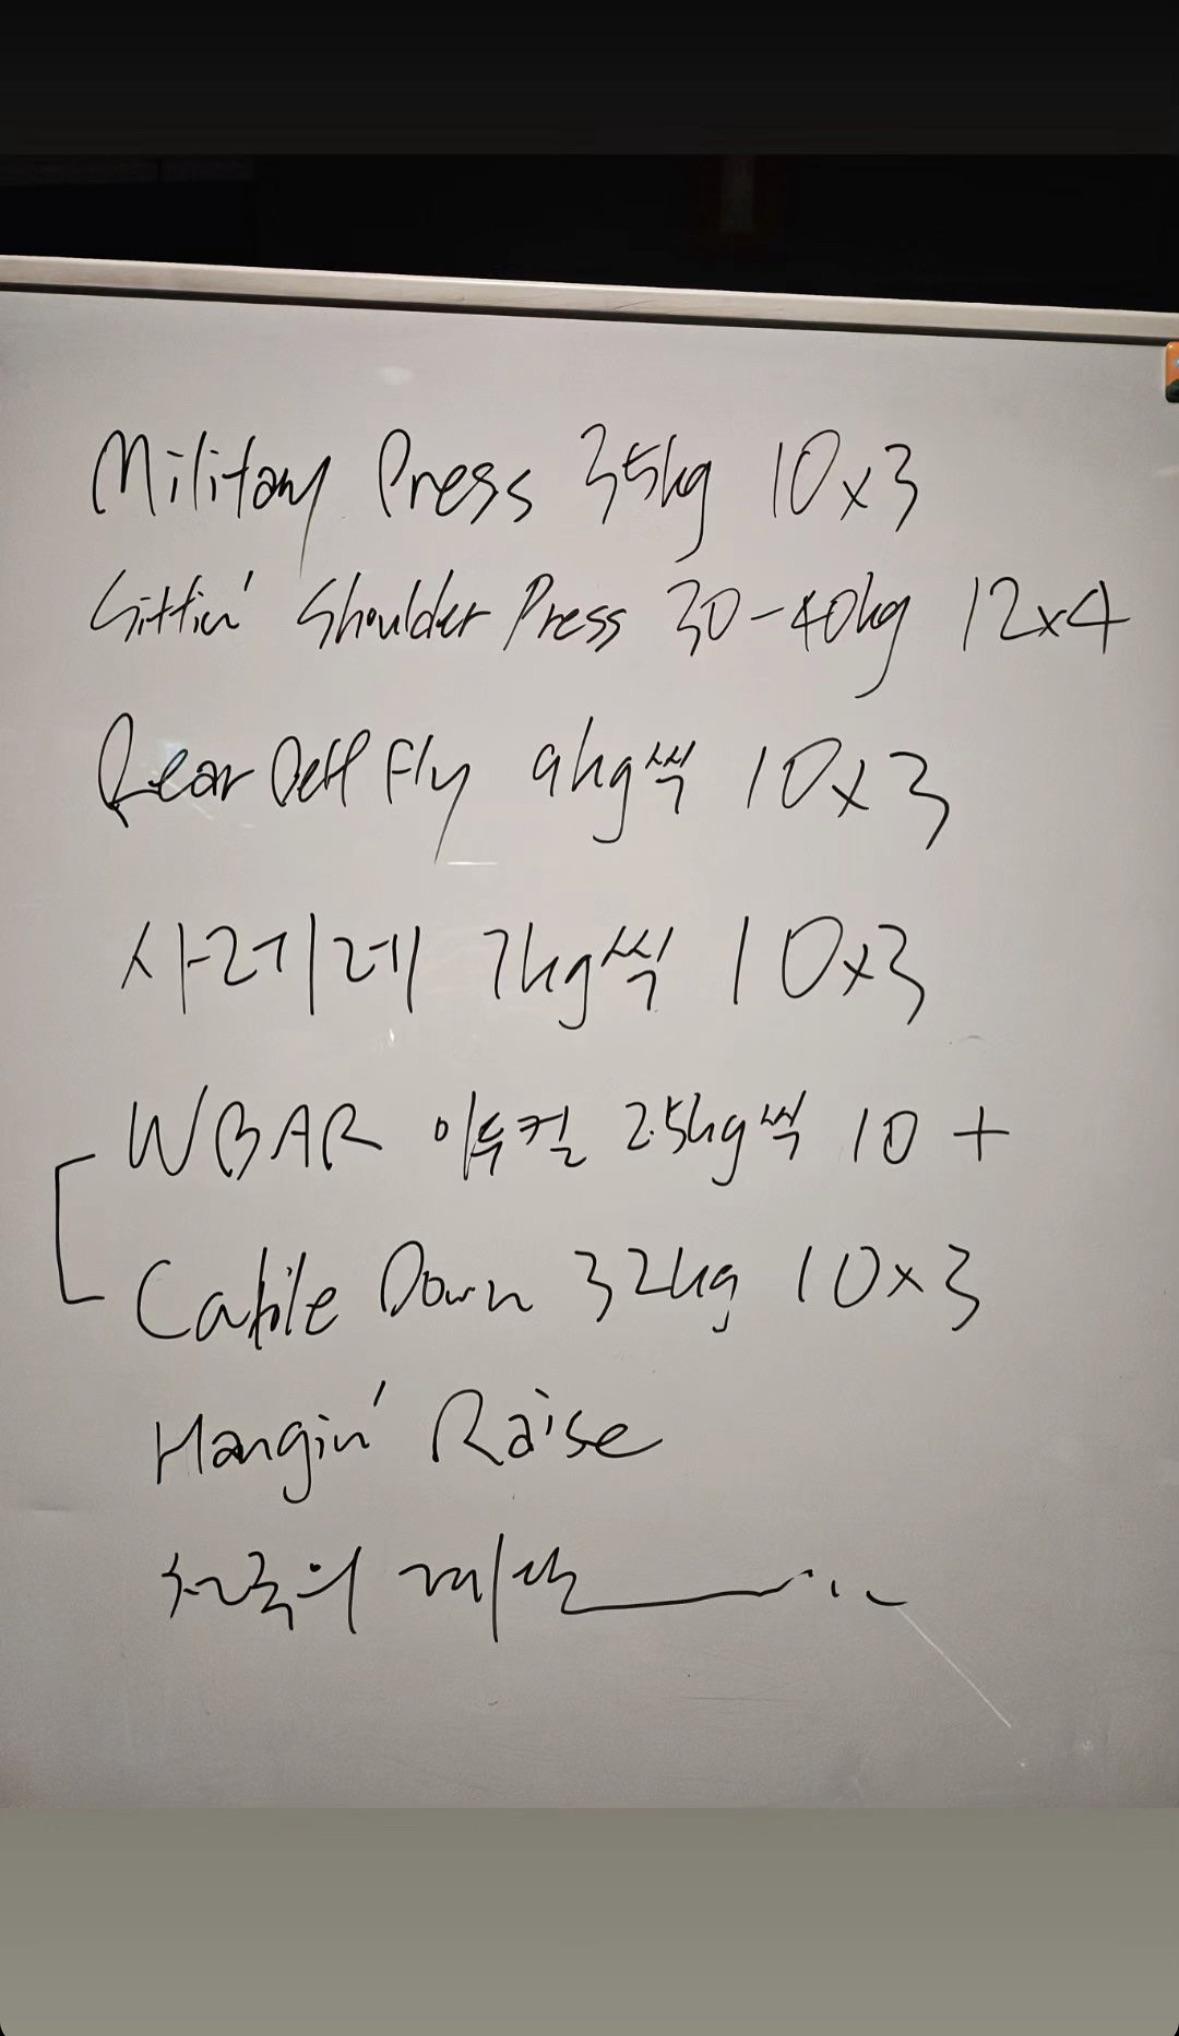 Military Press 35kg 10x3
Sittin' Shoulder Press 30-40kg 12x4
Rear Delt Fly 9kg씩 10x3
사레레 7kg씩 10x3
WBAR 이두컬 2.5kg씩 10 +
Cable Down 32kg 10x3
Hangin' Raise
천국의 계단...